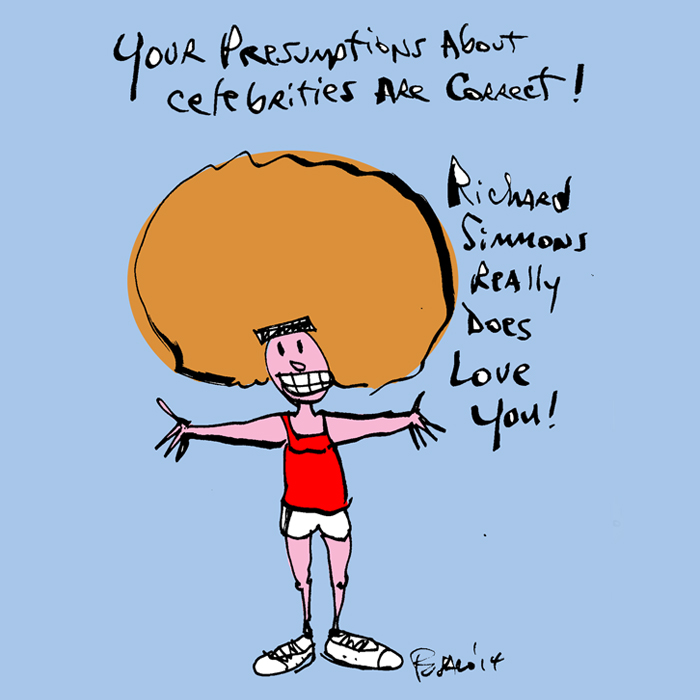 Your Presumptions About
celebrities Are Correct!
Richard
Simmons
Really
Does
Love
You!
'14